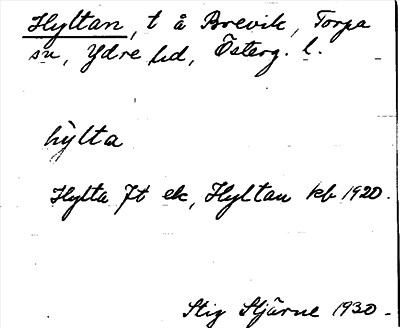 Hyltan, t å Brevik, Torpa
sn, Ydre hd, Österg. l.
hylta
Hylta Jt ek, Hyltan kb 1920.
Stig Stjärne 1930.